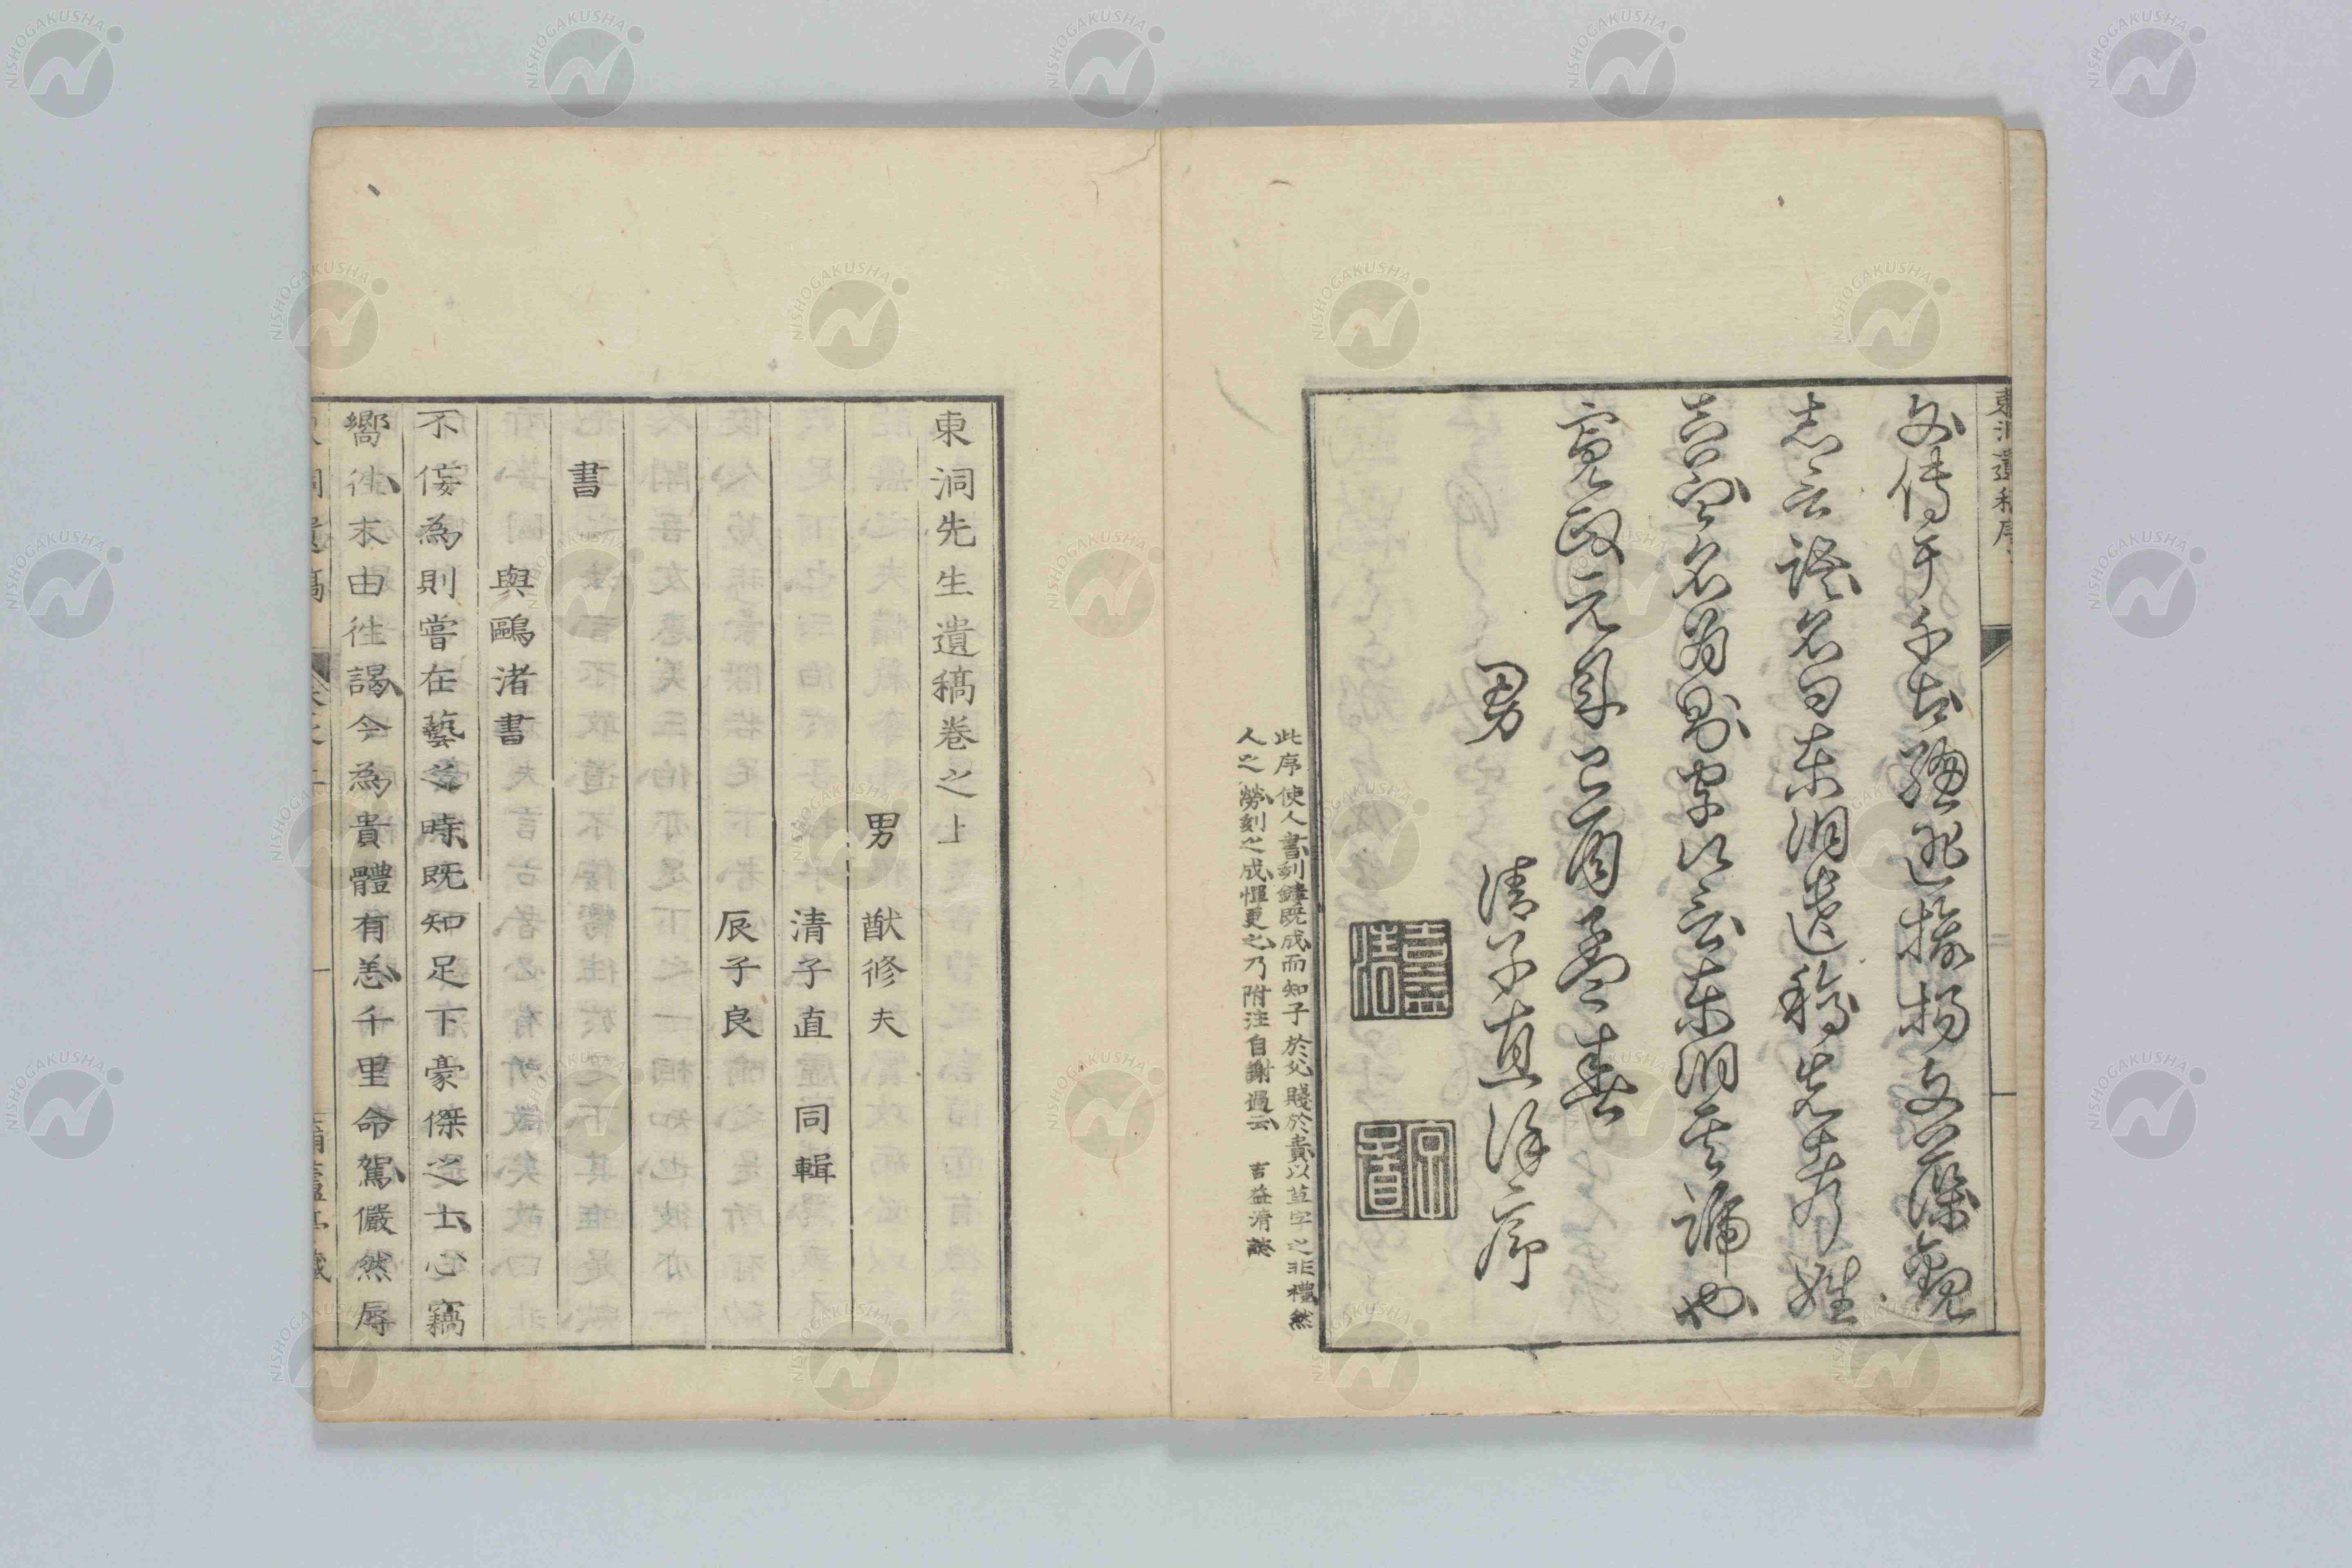 東洞遺稿序
文傳于千古
文藻観
志云
名曰東洞遺稿先考姓
吉益名為則字公言東洞其號也
寛政元年己酉孟春
男
清子直謹序
此序使人書刻鏤既成而知子於父賤於貴以草字之非禮然
人之勞刻之成憚更之乃附注自謝過云 吉益清識
東洞先生遺稿卷之上
男 猷修夫
清子直 同輯
辰子良
書
與鷗渚書
不佞為則嘗在藝之時既知足下豪傑之士心竊
嚮往末由往謁今為貴體有恙千里命駕儼然辱
NISHOGAKUSHA